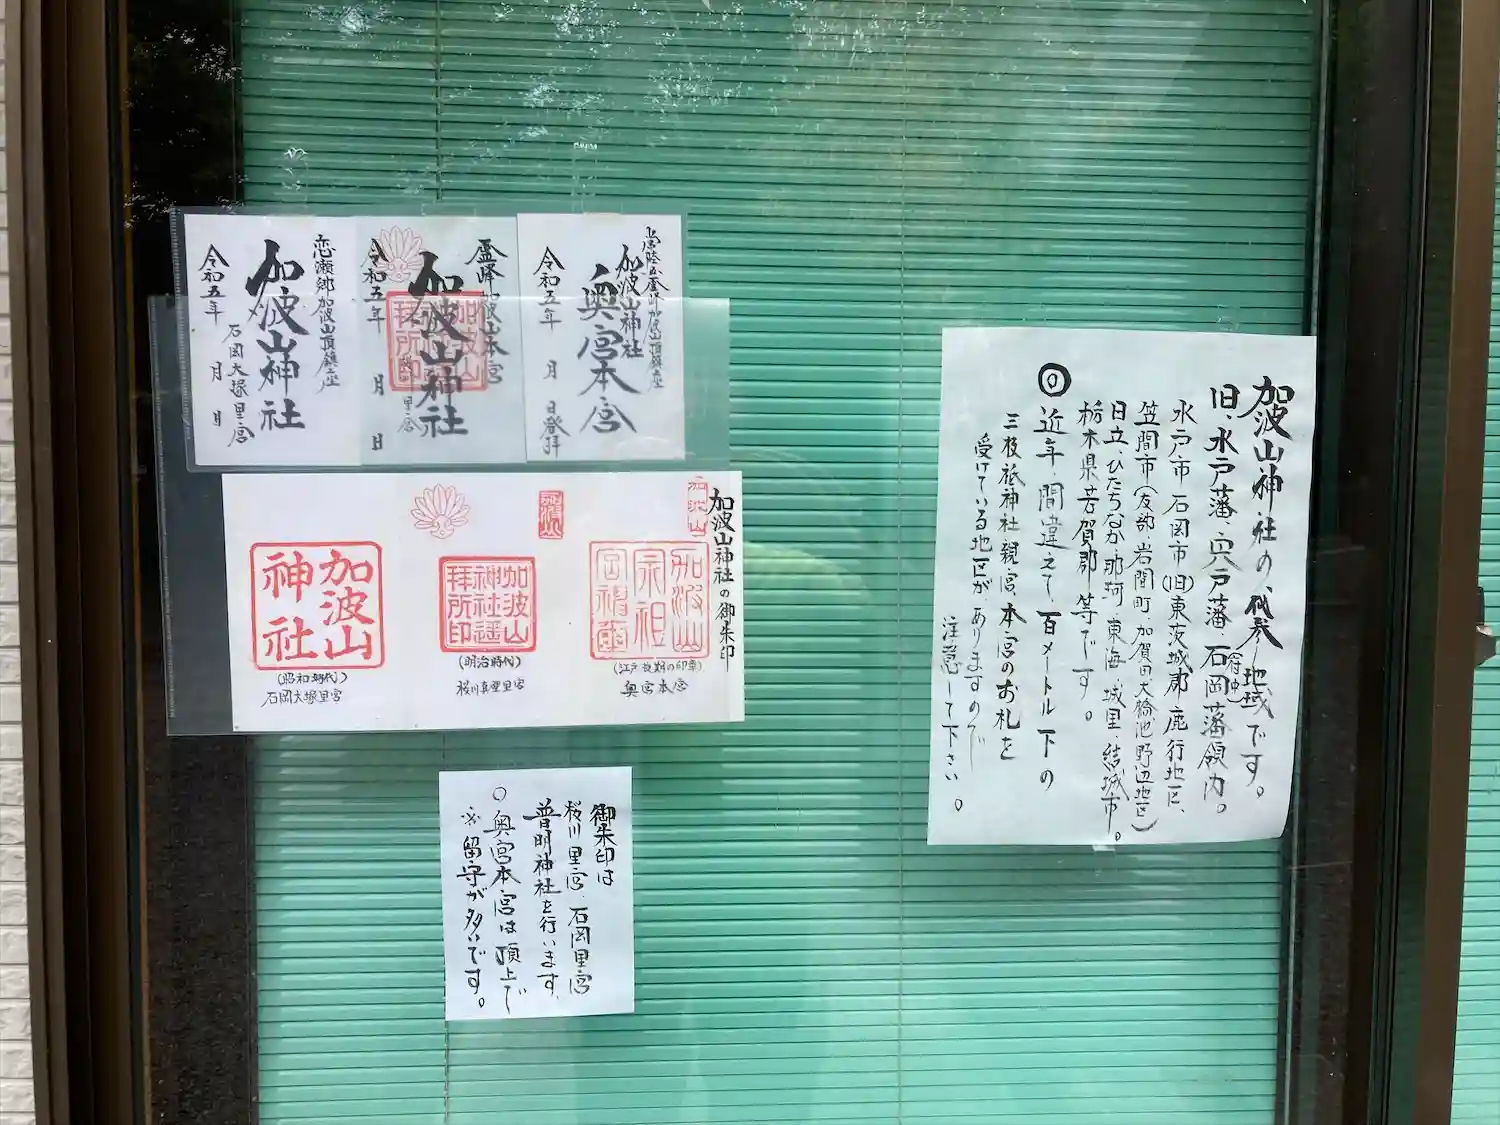 加波山神社の氏子地域です。
旧、水戸藩、宍戸藩、石岡(府中)藩領内。
水戸市 石岡市(旧)東茨城郡、鹿行地区、
笠間市(友部、岩間町、加賀田大橋池野辺地区)
日立、ひたちなか、那珂、東海、城里、結城市。
栃木県芳賀郡等です。
◎近年、間違えて、百メートル下の
三枝祇神社親宮、本宮のお札を
受けている地区がありますので
注意して下さい。
常陸国霊峰加波山頂鎮座
加波山神社
奥宮本宮
令和五年 月 日登拝
霊峰加波山本宮
加波山神社
里宮
令和五年 月 日
恋瀬郷加波山頂鎮座
加波山神社
石岡大塚里宮
令和五年 月 日
加波山神社の御朱印
加波山
(江戸後期の印章)
奥宮本宮
加波山
神社遥
拝所印
(明治時代)
桜川真壁里宮
加波山
神社
(昭和時代)
石岡大塚里宮
御朱印は
桜川里宮、石岡里宮
普明神社を行います、
○奥宮本宮は頂上で
※留守が多いです。